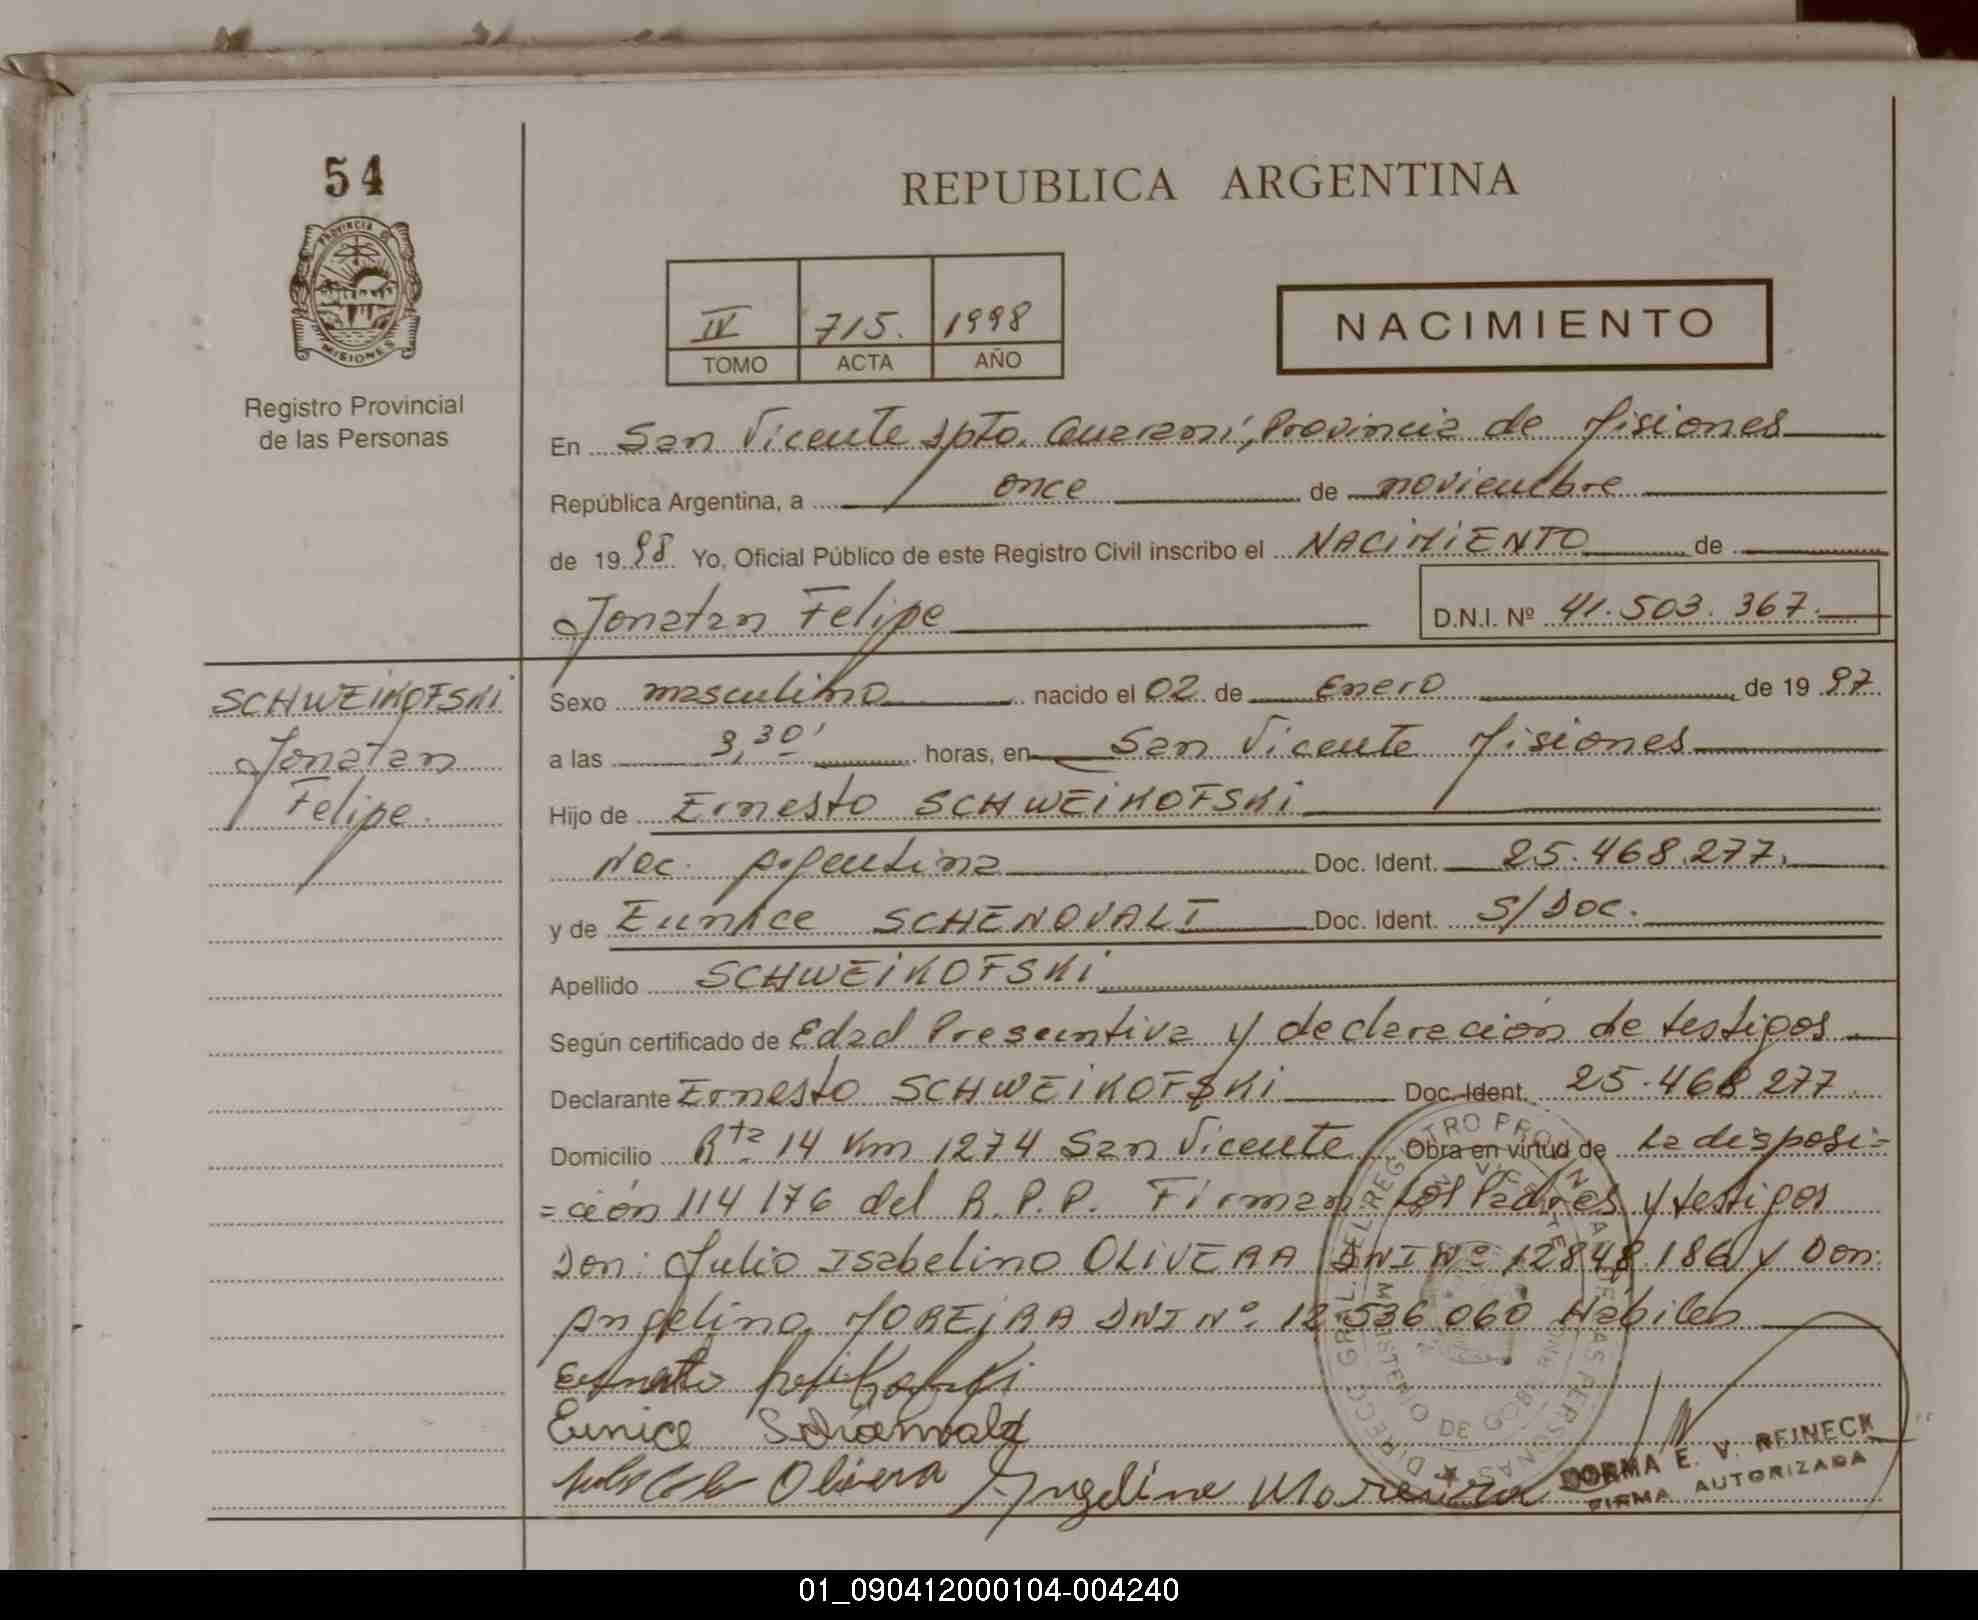 54
REPUBLICA ARGENTINA
PROVINCIA DE
MISIONES
Registro Provincial
de las Personas
IV 715. 1998
TOMO ACTA AÑO
NACIMIENTO
En San Vicente Dpto. Guaraní, Provincia de Misiones
República Argentina, a once de noviembre
de 1998 Yo, Oficial Público de este Registro Civil inscribo el NACIMIENTO de
Jonatan Felipe D.N.I. Nº 41.503.367.
SCHWEIKOFSKI
Jonatan
Felipe.
Sexo masculino nacido el 02 de Enero de 1997
a las 3,30' horas, en San Vicente Misiones
Hijo de Ernesto SCHWEIKOFSKI
Nac. Argentina Doc. Ident. 25.468.277.
y de Eunice SCHENOVALT Doc. Ident. S/Doc.
Apellido SCHWEIKOFSKI
Según certificado de Edad Presuntiva y declaración de testigos
Declarante Ernesto SCHWEIKOFSKI Doc. Ident. 25.468.277
Domicilio Rta 14 Km 1274 San Vicente Obra en virtud de La disposi=
=ción 114176 del R.P.P. Firman los Padres y testigos
Don: Julio Isabelino OLIVERA DNI Nº 12848.186 y Don:
Angelino MOREIRA DNI Nº. 12.536.060 Habiles
Eunice Schoenwald
Olivera Angelino Moreira
NORMA E. V. REINECK
FIRMA AUTORIZADA
01_090412000104-004240